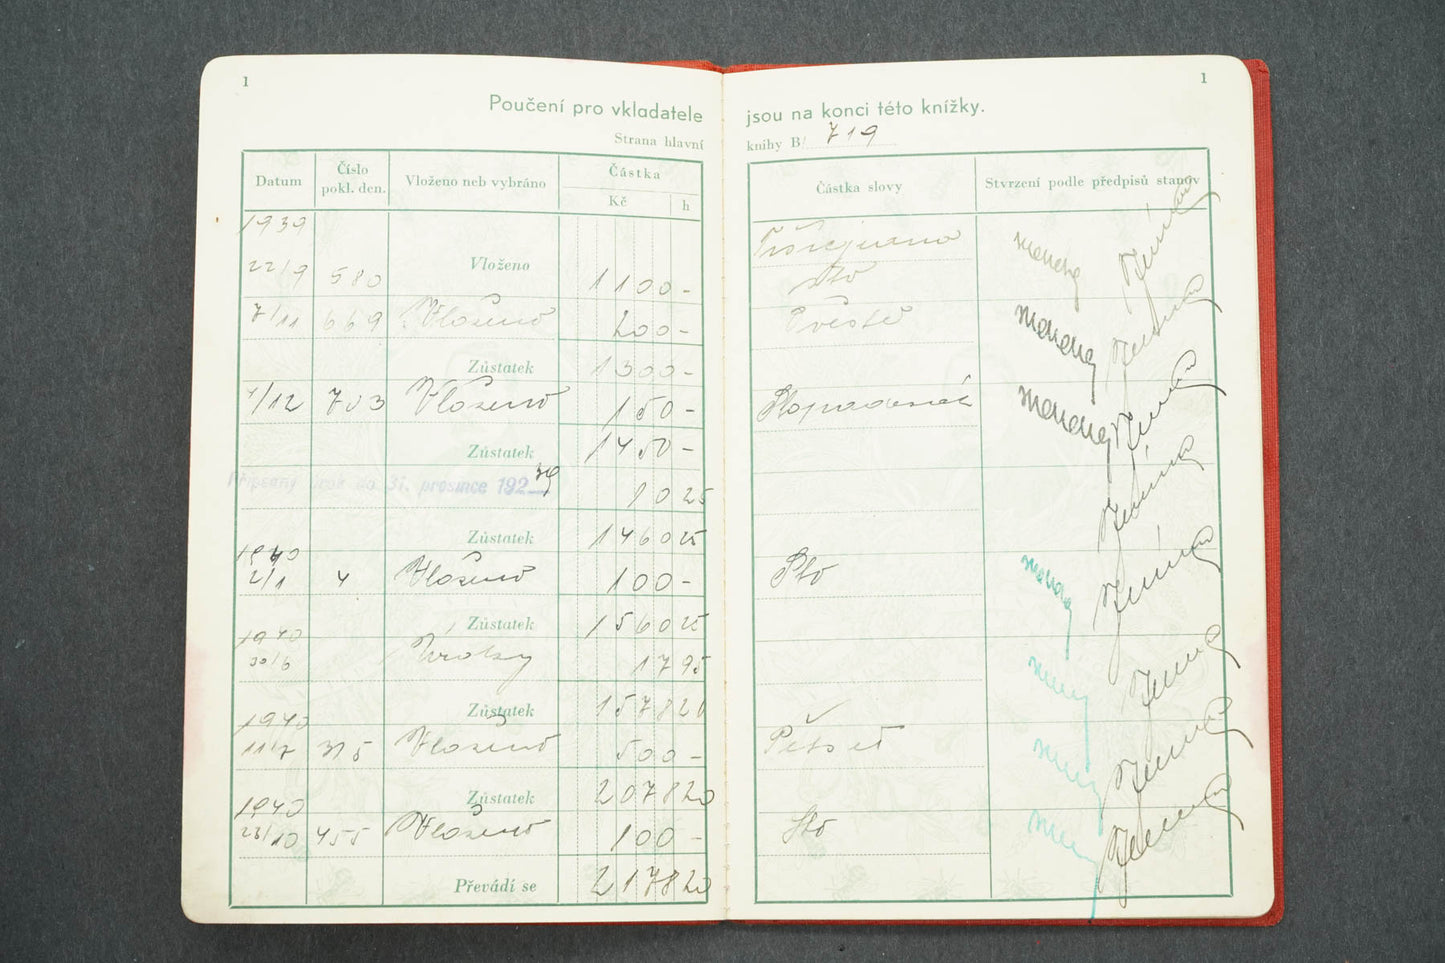 1
Poučení pro vkladatele
Strana hlavní
Datum
Číslo pokl. den.
Vloženo neb vybráno
Částka
Kč h
1939
22/9 580 Vloženo 1100-
7/11 669 Vloženo 200-
Zůstatek 1300-
7/12 703 Vloženo 150-
Zůstatek 1450-
Připsaný úrok do 31. prosince 192 39 10 25
Zůstatek 1460 25
1940
2/1 4 Vloženo 100-
Zůstatek 1560 25
1940
30/6 Úroky 17 95
Zůstatek 1578 20
1940
11/7 315 Vloženo 500-
Zůstatek 2078 20
1940
23/10 455 Vloženo 100-
Převádí se 2178 20
1
jsou na konci této knížky.
knihy B/ 719
Částka slovy
Stvrzení podle předpisů stanov
sto
Dvěstě
Stopadesát
Sto
Pětset
Sto